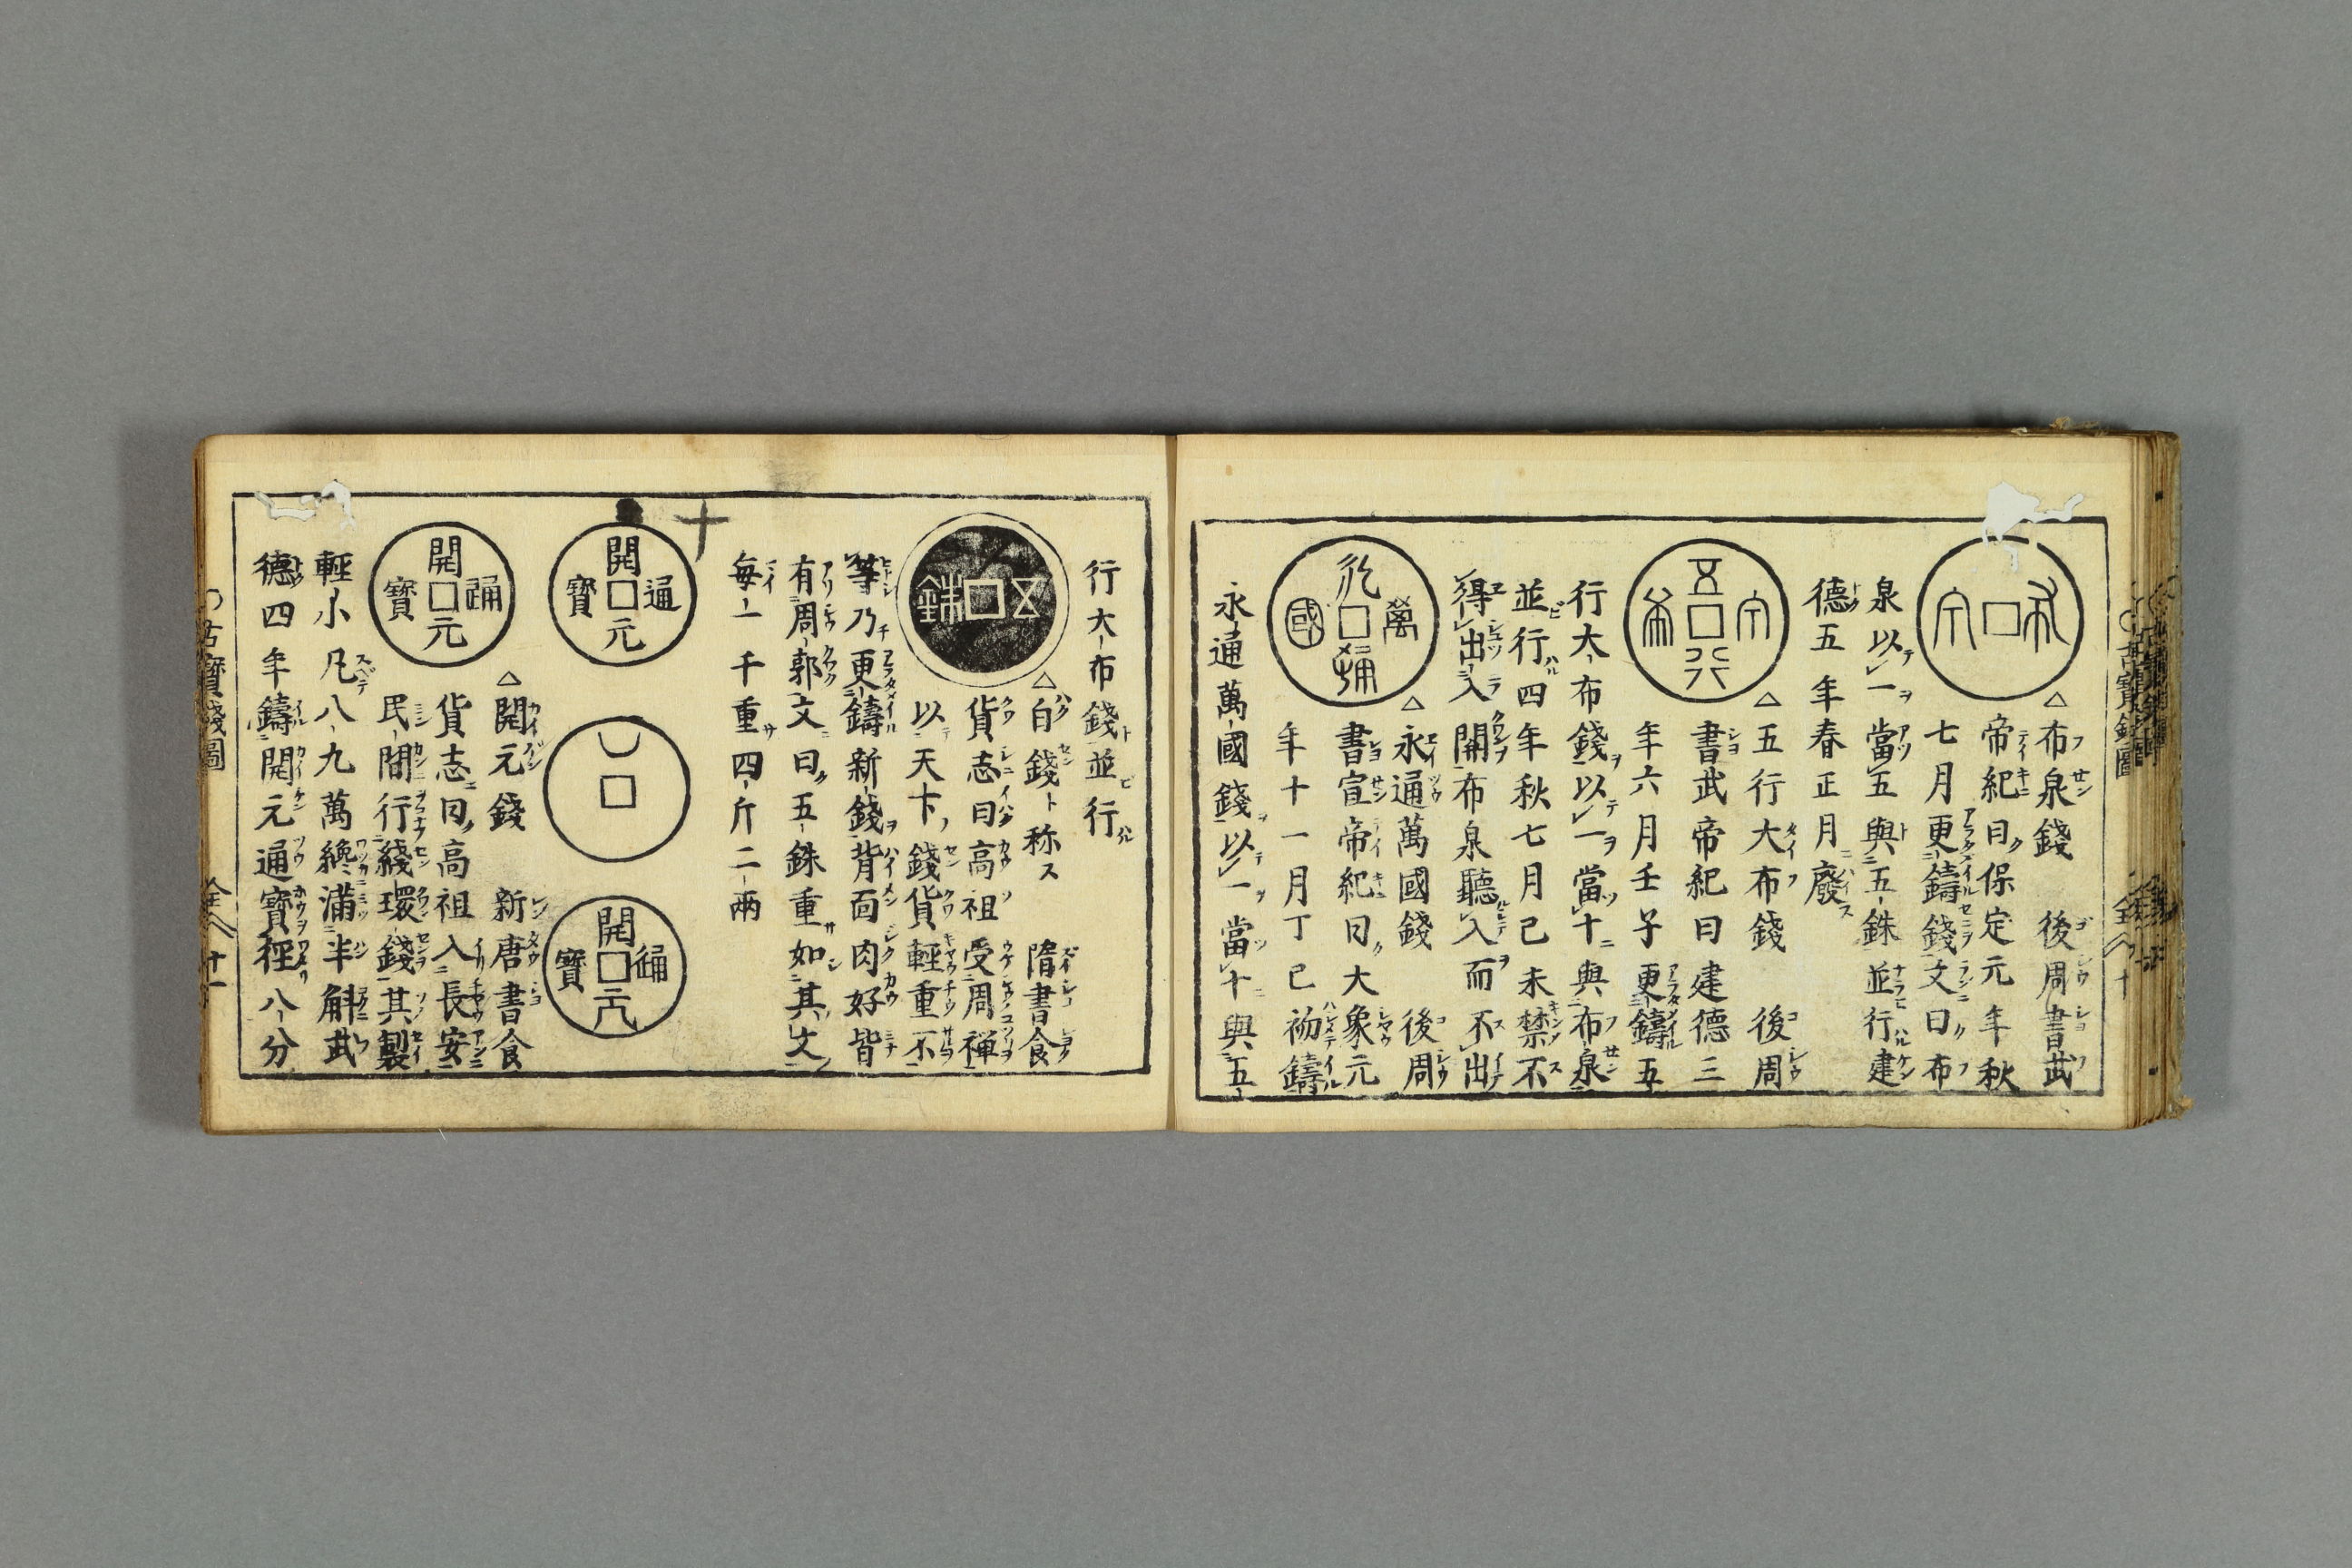 布泉
△布泉錢　後周書武
帝紀曰保定元年秋
七月更鑄錢文曰布
泉以一當五與五銖並行建
德五年春正月廢
五行大布
△五行大布錢　後周
書武帝紀曰建德三
年六月壬子更鑄五
行大布錢以一當十與布泉
並行四年秋七月己未禁不
得出入開布泉聽入而不出
永通萬國
△永通萬國錢　後周
書宣帝紀曰大象元
年十一月丁巳初鑄
永通萬國錢以一當十與五
行大布錢並行
五銖
△白錢ト称ス　隋書食
貨志曰高祖受周禅
以天下錢貨輕重不
等乃更鑄新錢背面肉好皆
有周郭文曰五銖重如其文
每一千重四斤二兩
開元通寶
開元通寶
開元通寶
△開元錢　新唐書食
貨志曰高祖入長安
民間行綫環錢其製
輕小凡八九萬纔滿半斛武
德四年鑄開元通寶徑八分
古寶錢圖
全
十一